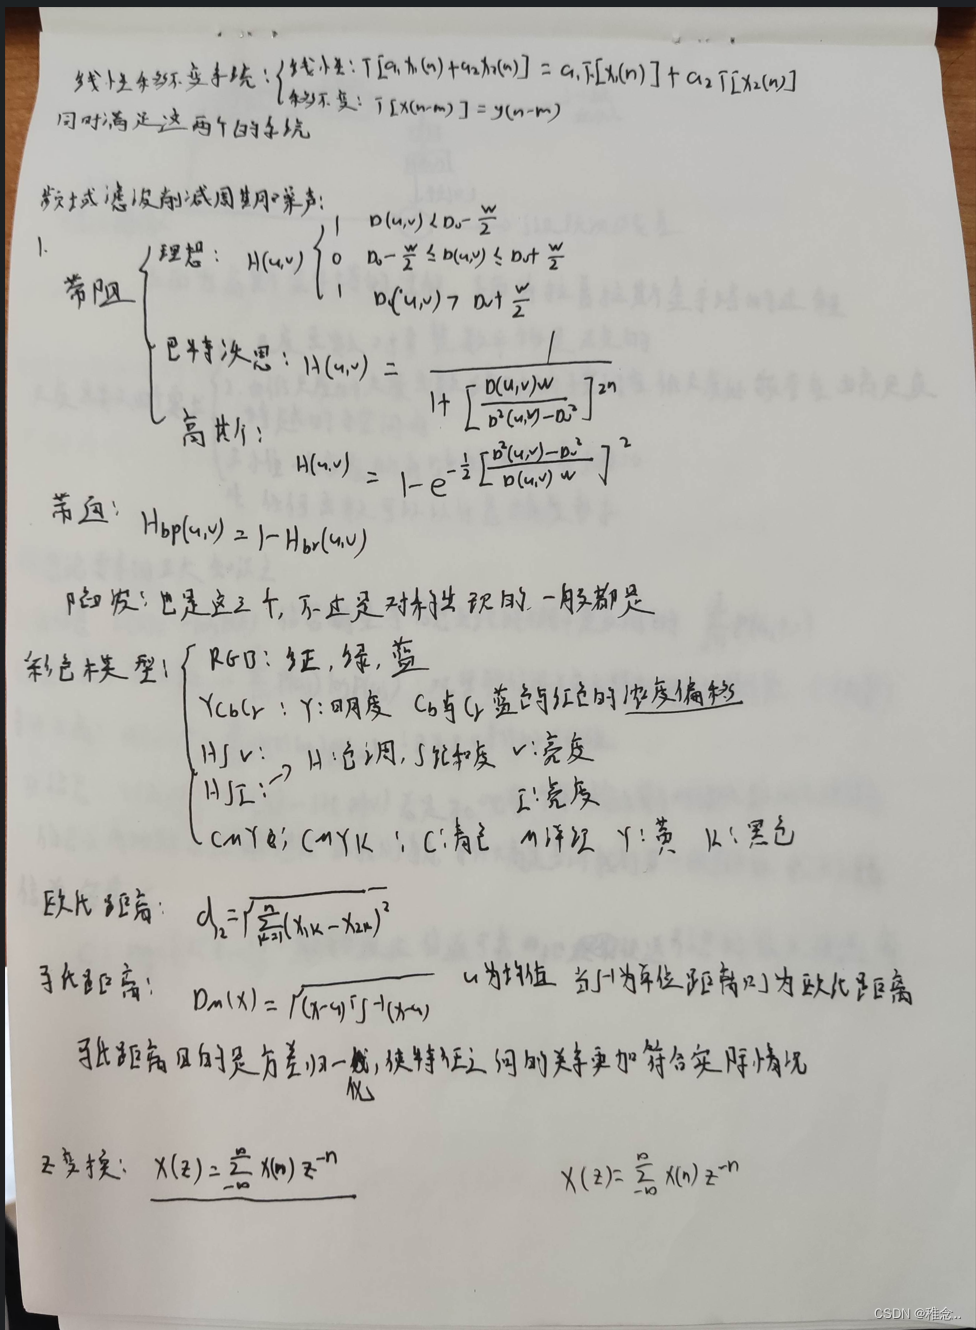 线性移不变系统: { 线性: T[a₁x₁(n)+a₂x₂(n)] = a₁T[x₁(n)] + a₂T[x₂(n)]
移不变: T[x(n-m)] = y(n-m)
同时满足这两个的系统
频域滤波削减周期噪声:
1.
带阻 { 理想: H(u,v) { 1 D(u,v) < D₀ - W/2
0 D₀ - W/2 ≤ D(u,v) ≤ D₀ + W/2
1 D(u,v) > D₀ + W/2
巴特沃思: H(u,v) = 1 / (1 + [D(u,v)W / (D²(u,v) - D₀²)]²ⁿ)
高斯: H(u,v) = 1 - e^(-1/2 [(D²(u,v) - D₀²) / (D(u,v) W)]²)
带通: Hbp(u,v) = 1 - Hbr(u,v)
陷波: 也是这三个, 不过是对称出现的 一般都是
彩色模型: { RGB: 红, 绿, 蓝
YCbCr: Y: 明度 Cb与Cr 蓝色与红色的浓度偏移
HSV: H: 色调, S饱和度 V: 亮度
HSI: → I: 亮度
CMY&; CMYK: C: 青色 M 洋红 Y: 黄 K: 黑色
欧氏距离: d₁₂ = √(Σ(k=1→n) (x₁k - x₂k)²)
马氏距离: Dm(x) = √((x-u)ᵀS⁻¹(x-u)) u为均值 当S⁻¹为单位距离则为欧氏距离
马氏距离目的是方差归一化, 使特征之间的关系更加符合实际情况
Z变换: X(z) = Σ(-∞→∞) x(n) z⁻ⁿ X(z) = Σ(-∞→∞) x(n) z⁻ⁿ
CSDN @稚念..